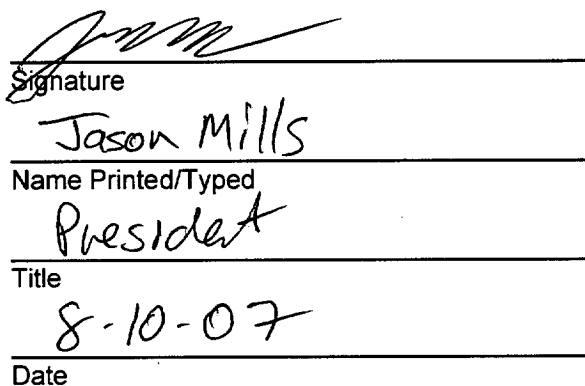 Signature
Jason Mills
Name Printed/Typed
President
Title
8-10-07
Date